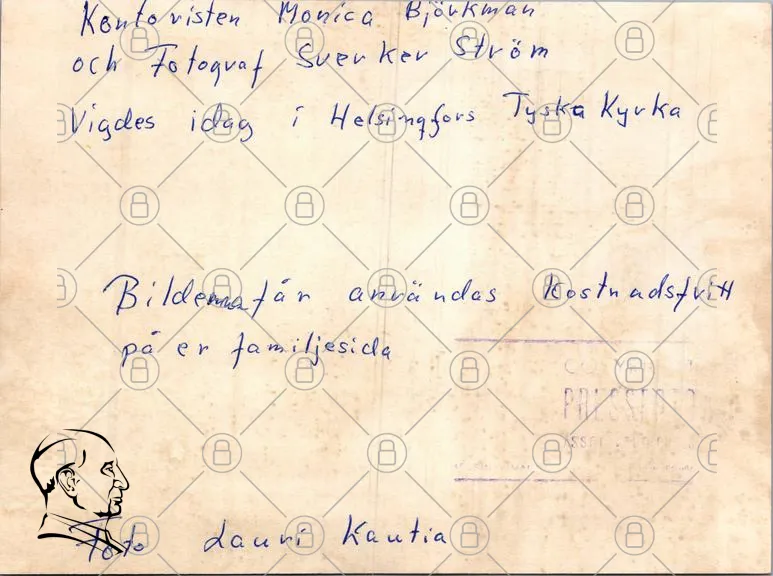 Kontoristen Monica Björkman
och Fotograf Sverker Ström
Vigdes idag i Helsingfors Tyska Kyrka
Bilden får användas kostnadsfritt
på er familjesida
PRESSFOTO
Foto Lauri Kautia